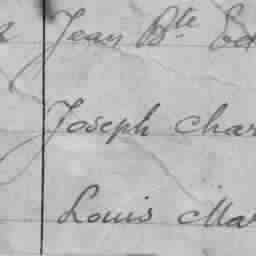 Jean Bte Ed
Joseph Char
Louis Mar